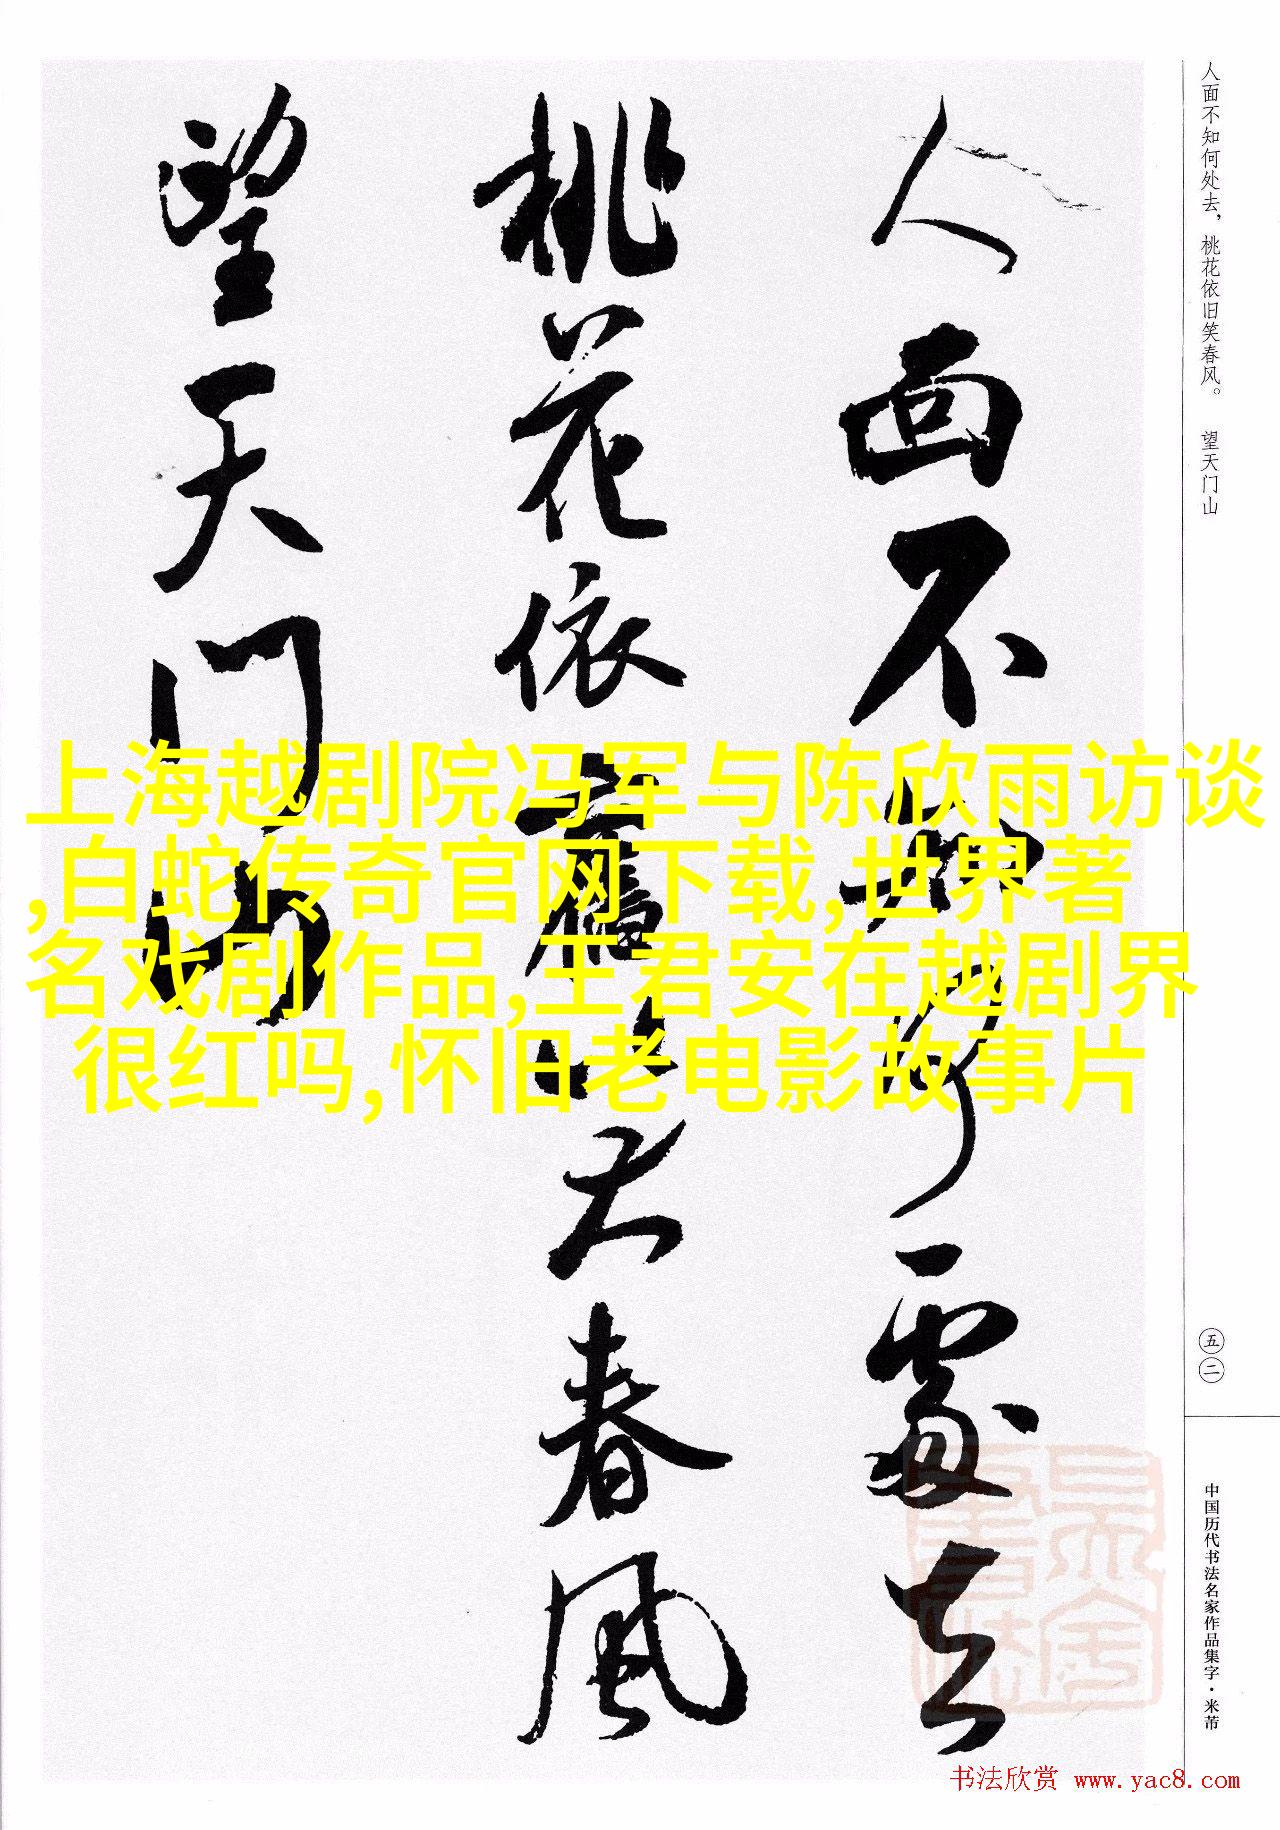 人面不知何处去，桃花依旧笑春风。 望天门山
人面不知何處去
桃花依舊笑春风
望天门山
上海越剧院冯军与陈欣雨访谈
,白蛇传奇官网下载,世界著
名戏剧作品,王君安在越剧界
很红吗,怀旧老电影故事片
五二
中国历代书法名家作品集字·米芾
书法欣赏 www.yac8.com